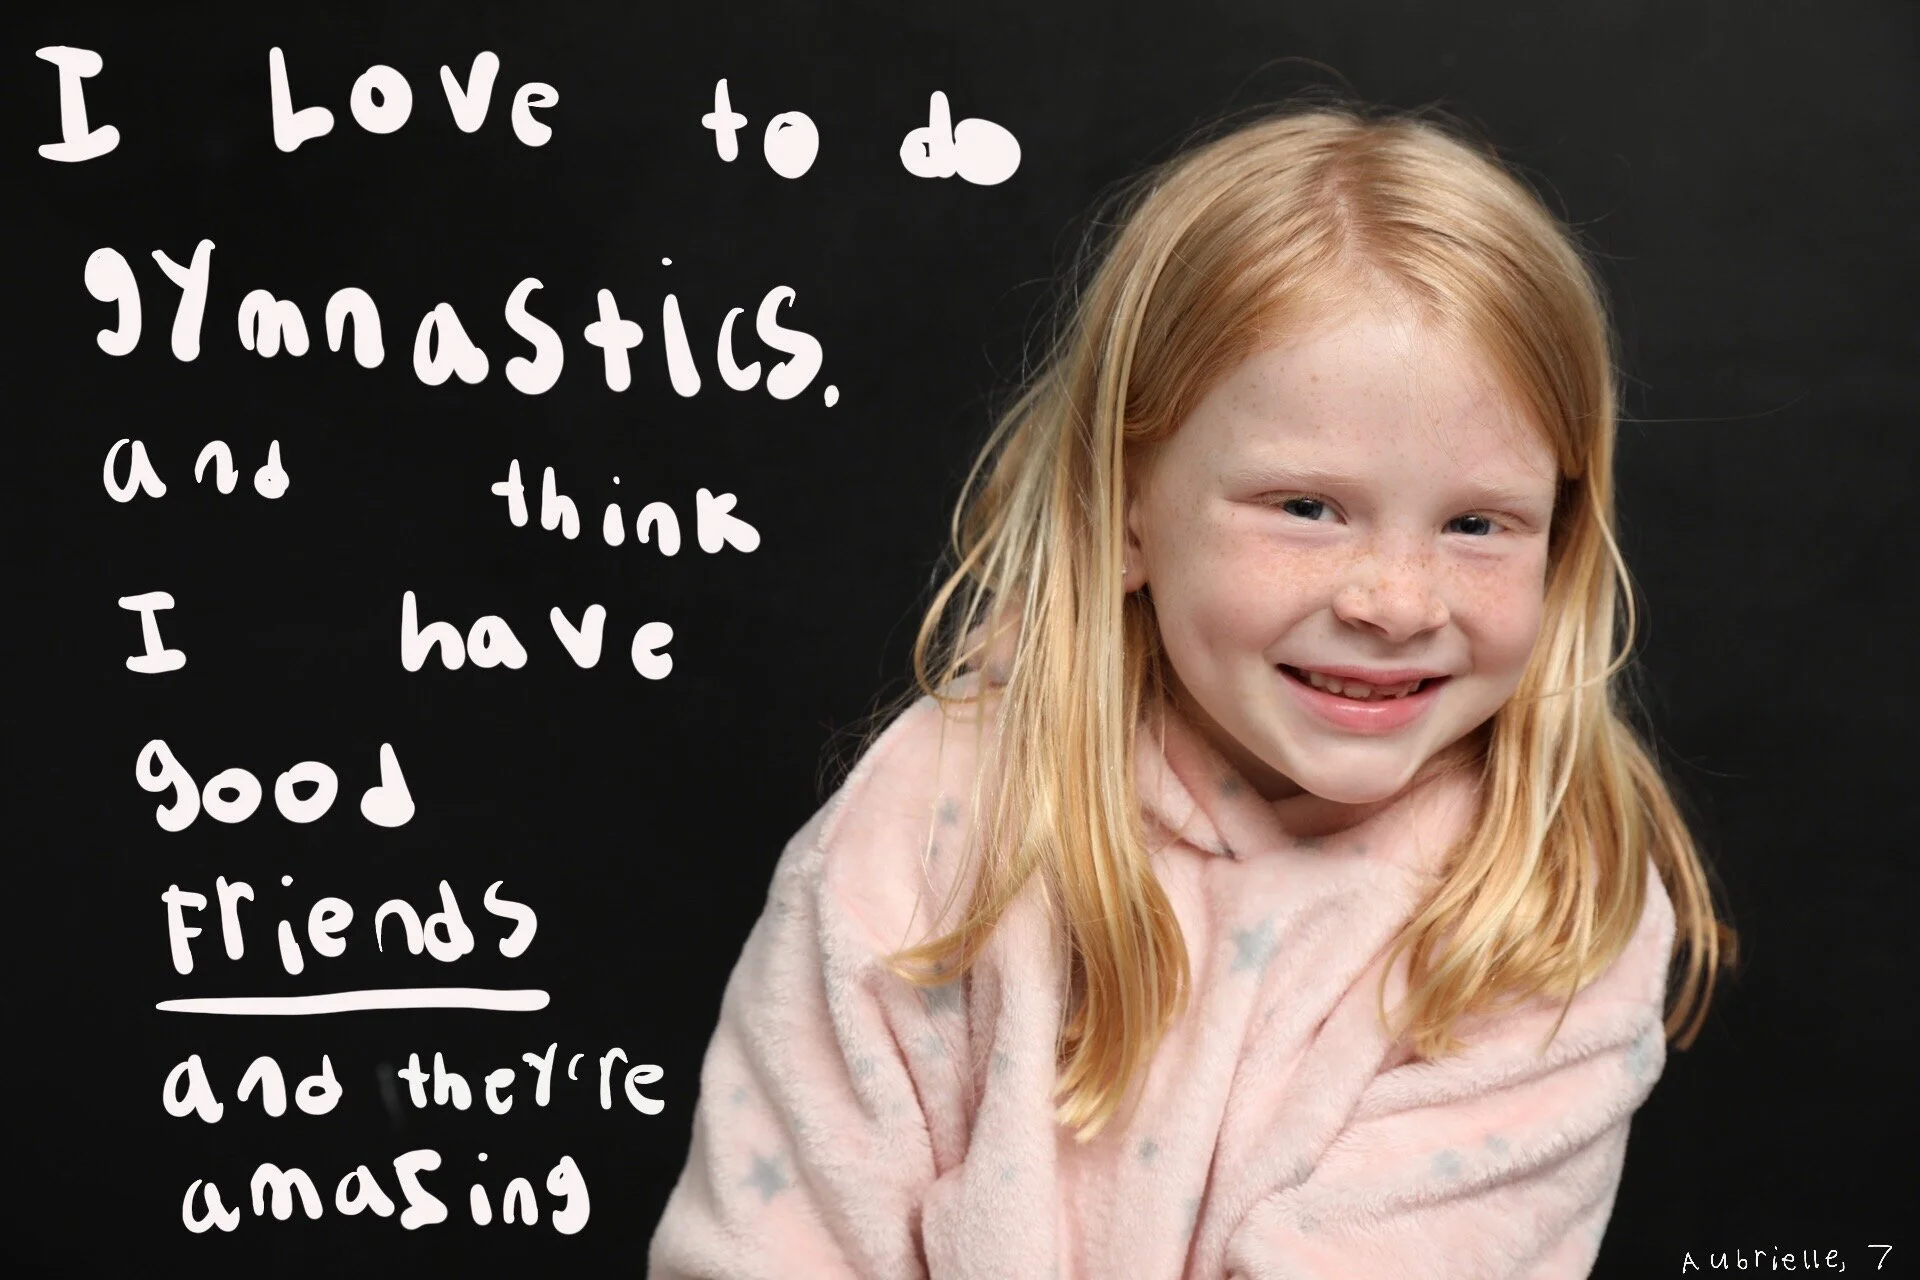 I Love to do
gymnastics.
and think
I have
good
Friends
and they're
amazing
Aubrielle, 7